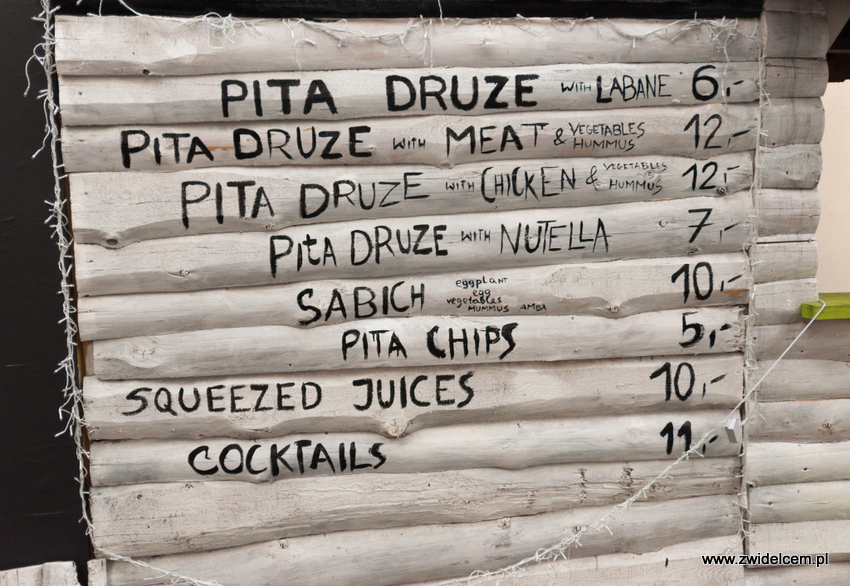 PITA DRUZE WITH LABANE 6,-
PITA DRUZE WITH MEAT & VEGETABLES HUMMUS 12,-
PITA DRUZE WITH CHICKEN & VEGETABLES HUMMUS 12,-
PITA DRUZE WITH NUTELLA 7,-
SABICH eggplant egg vegetables HUMMUS AMBA 10,-
PITA CHIPS 5,-
SQUEEZED JUICES 10,-
COCKTAILS 11,-
www.zwidelcem.pl